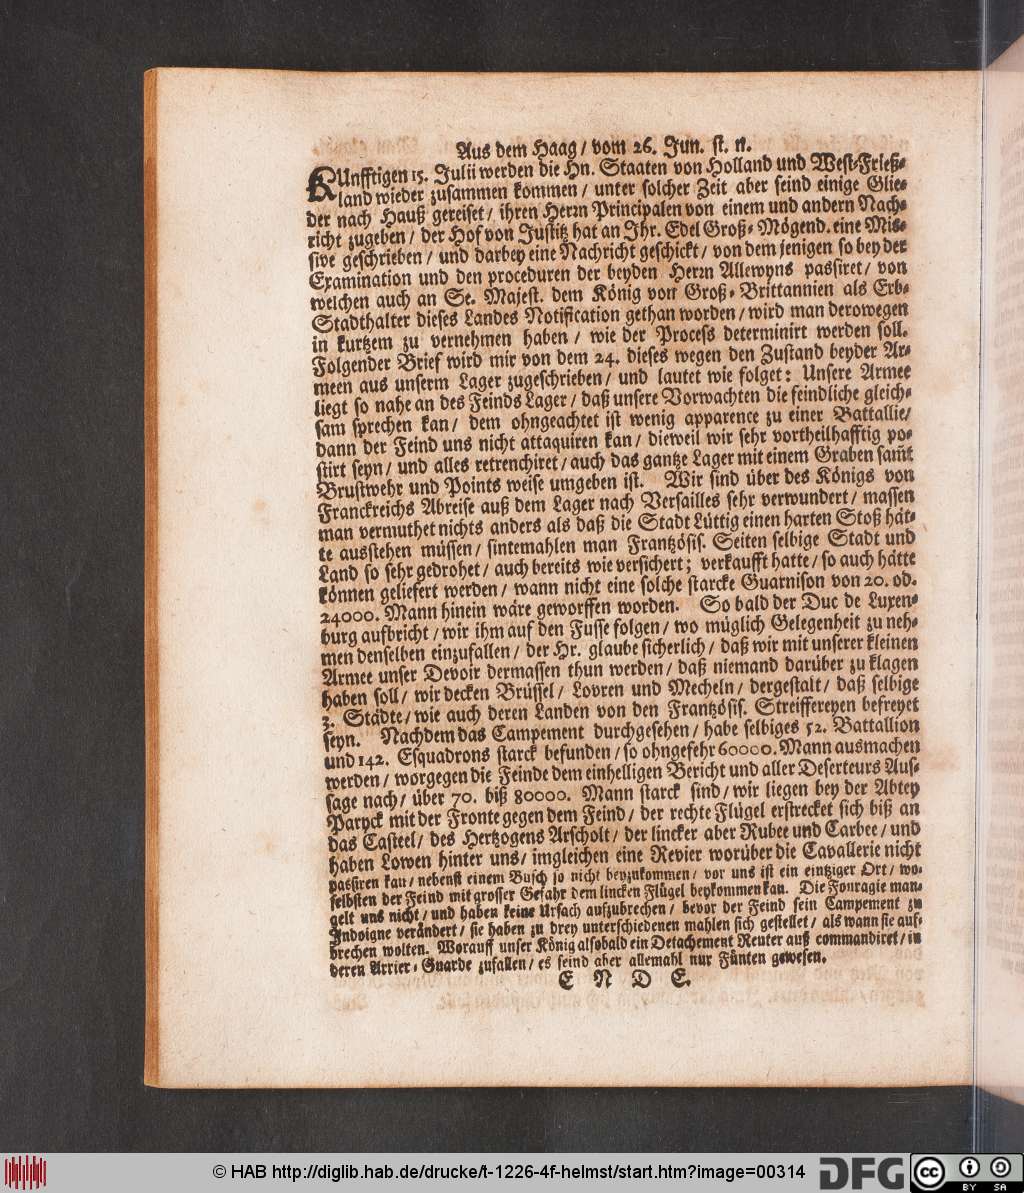 Aus dem Haag / vom 26. Jun. st. n.
KUnfftigen 15. Julii werden die Hn. Staaten von Holland und West-Frieß-
land wieder zusammen kommen / unter solcher Zeit aber seind einige Glie-
der nach Hauß gereiset / ihren Herrn Principalen von einem und andern Nach-
richt zugeben / der Hof von Justitz hat an Ihr. Edel Groß-Mögend. eine Mis-
sive geschrieben / und darbey eine Nachricht geschickt / von dem jenigen so bey der
Examination und den proceduren der beyden Herrn Allewyns passiret / von
welchen auch an Se. Majest. dem König von Groß-Brittannien als Erb-
Stadthalter dieses Landes Notification gethan worden / wird man derowegen
in kurtzem zu vernehmen haben / wie der Process determinirt werden soll.
Folgender Brief wird mir von dem 24. dieses wegen den Zustand beyder Ar-
meen aus unserm Lager zugeschrieben / und lautet wie folget: Unsere Armee
liegt so nahe an des Feinds Lager / daß unsere Vorwachten die feindliche gleich-
sam sprechen kan / dem ohngeachtet ist wenig apparence zu einer Battallie /
dann der Feind uns nicht attaquiren kan / dieweil wir sehr vortheilhafftig po-
stirt seyn / und alles retrenchiret / auch das gantze Lager mit einem Graben sam̃t
Brustwehr und Points weise umgeben ist. Wir sind über des Königs von
Franckreichs Abreise auß dem Lager nach Versailles sehr verwundert / massen
man vermuthet nichts anders als daß die Stadt Lüttig einen harten Stoß hät-
te ausstehen müssen / sintemahlen man Frantzösis. Seiten selbige Stadt und
Land so sehr gedrohet / auch bereits wie versichert; verkaufft hatte / so auch hätte
können geliefert werden / wann nicht eine solche starcke Guarnison von 20. od.
24000. Mann hinein wäre geworffen worden. So bald der Duc de Luxen-
burg aufbricht / wir ihm auf den Fusse folgen / wo müglich Gelegenheit zu neh-
men denselben einzufallen / der Hr. glaube sicherlich / daß wir mit unserer kleinen
Armee unser Devoir dermassen thun werden / daß niemand darüber zu klagen
haben soll / wir decken Brüssel / Lovren und Mecheln / dergestalt / daß selbige
3. Städte / wie auch deren Landen von den Frantzösis. Streiffereyen befreyet
seyn. Nachdem das Campement durchgesehen / habe selbiges 52. Battallion
und 142. Esquadrons starck befunden / so ohngefehr 60000. Mann ausmachen
werden / worgegen die Feinde dem einhelligen Bericht und aller Deserteurs Aus-
sage nach / über 70. biß 80000. Mann starck sind / wir liegen bey der Abtey
Paryck mit der Fronte gegen dem Feind / der rechte Flügel erstrecket sich biß an
das Casteel / des Hertzogens Arscholt / der lincker aber Rubee und Carbee / und
haben Lowen hinter uns / imgleichen eine Revier worüber die Cavallerie nicht
passiren kan / nebenst einem Busch so nicht beyzukommen / vor uns ist ein eintziger Ort / wo-
selbsten der Feind mit grosser Gefahr dem lincken Flügel beykommen kan. Die Fouragie man-
gelt uns nicht / und haben keine Ursach aufzubrechen / bevor der Feind sein Campement zu
Indoigne verändert / sie haben zu drey unterschiedenen mahlen sich gestellet / als wann sie auf-
brechen wolten. Worauff unser König alsobald ein Detachement Reuter auß commandiret / in
deren Arrier-Guarde zufallen / es seind aber allemahl nur Fünten gewesen.
E N D E.
© HAB http://diglib.hab.de/drucke/t-1226-4f-helmst/start.htm?image=00314
DFG
cc
BY SA